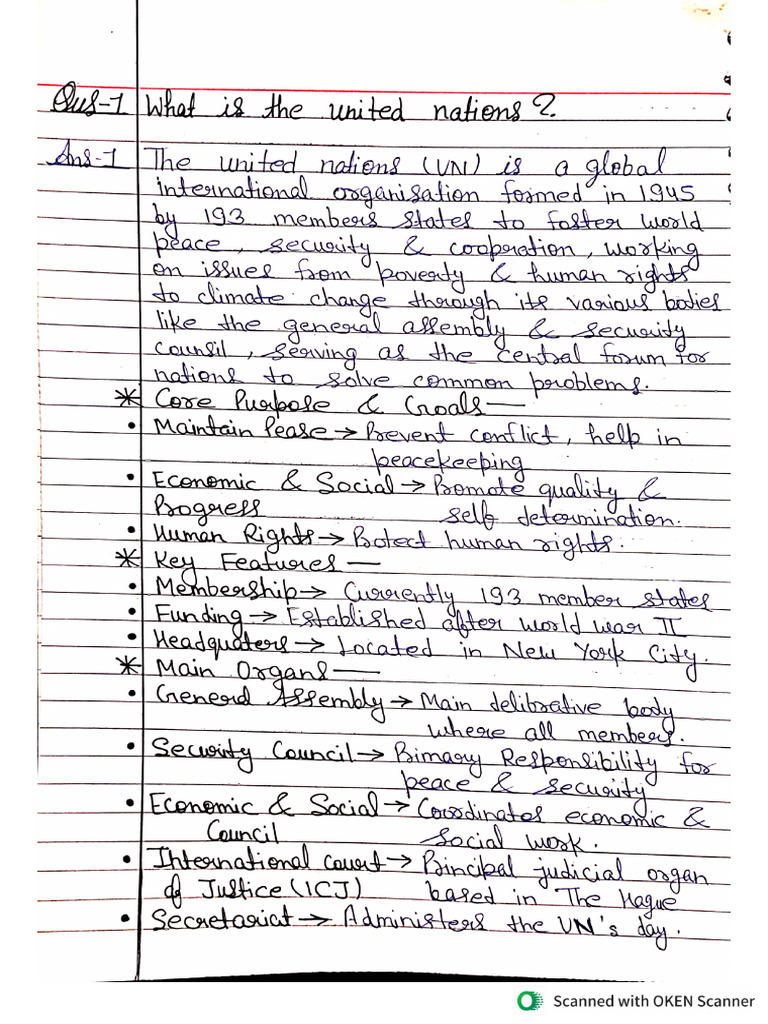 Qus-1 What is the united nations?
Ans-1 The united nations (UN) is a global
international organisation formed in 1945
by 193 members states to foster world
peace, security & coopration, working
on issues from poverty & human rights
to climate change through its various bodies
like the general assembly & security
counsil, serving as the central forum for
nations to solve common problems.
* Core Purpose & Goals —
• Maintain Pease → Prevent conflict, help in
peacekeeping
• Economic & Social → Promote quality &
Progress self determination.
• Human Rights → Protect human rights.
* Key Features —
• Membership → Currently 193 member states
• Funding → Established after world war II
• Headquaters → Located in New York City.
* Main Organs —
• General Assembly → Main delibrative body
where all members.
• Security Council → Primary Responsibility for
peace & security
• Economic & Social → Coordinates economic &
Council Social work.
• International court → Principal judicial organ
of Justice (ICJ) based in The Hague
• Secretariat → Administers the UN's day.
Scanned with OKEN Scanner